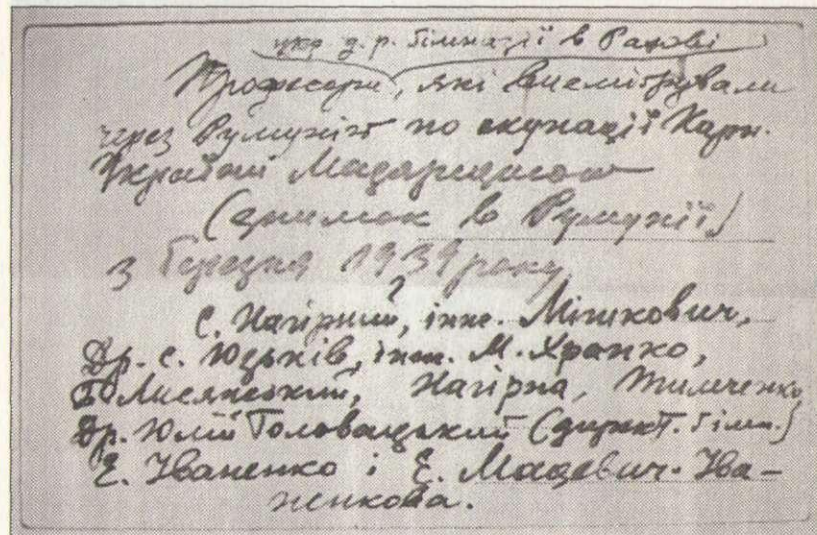 укр. д. р. гімназії в Рахові
Професори, які виемігрували
через Румунію по окупації Карп.
України Мадярщиною
(знимок в Румунії)
з березня 1939 року
С. Нагірний, інж. Мішкович,
Др. С. Юськів, інж. М. Храпко,
Лисянський, Нагірна, Тимченко,
Др. Юлій Головацький (директ. гімн.)
Е. Іваненко і Є. Мацевич-Іва-
ненкова.